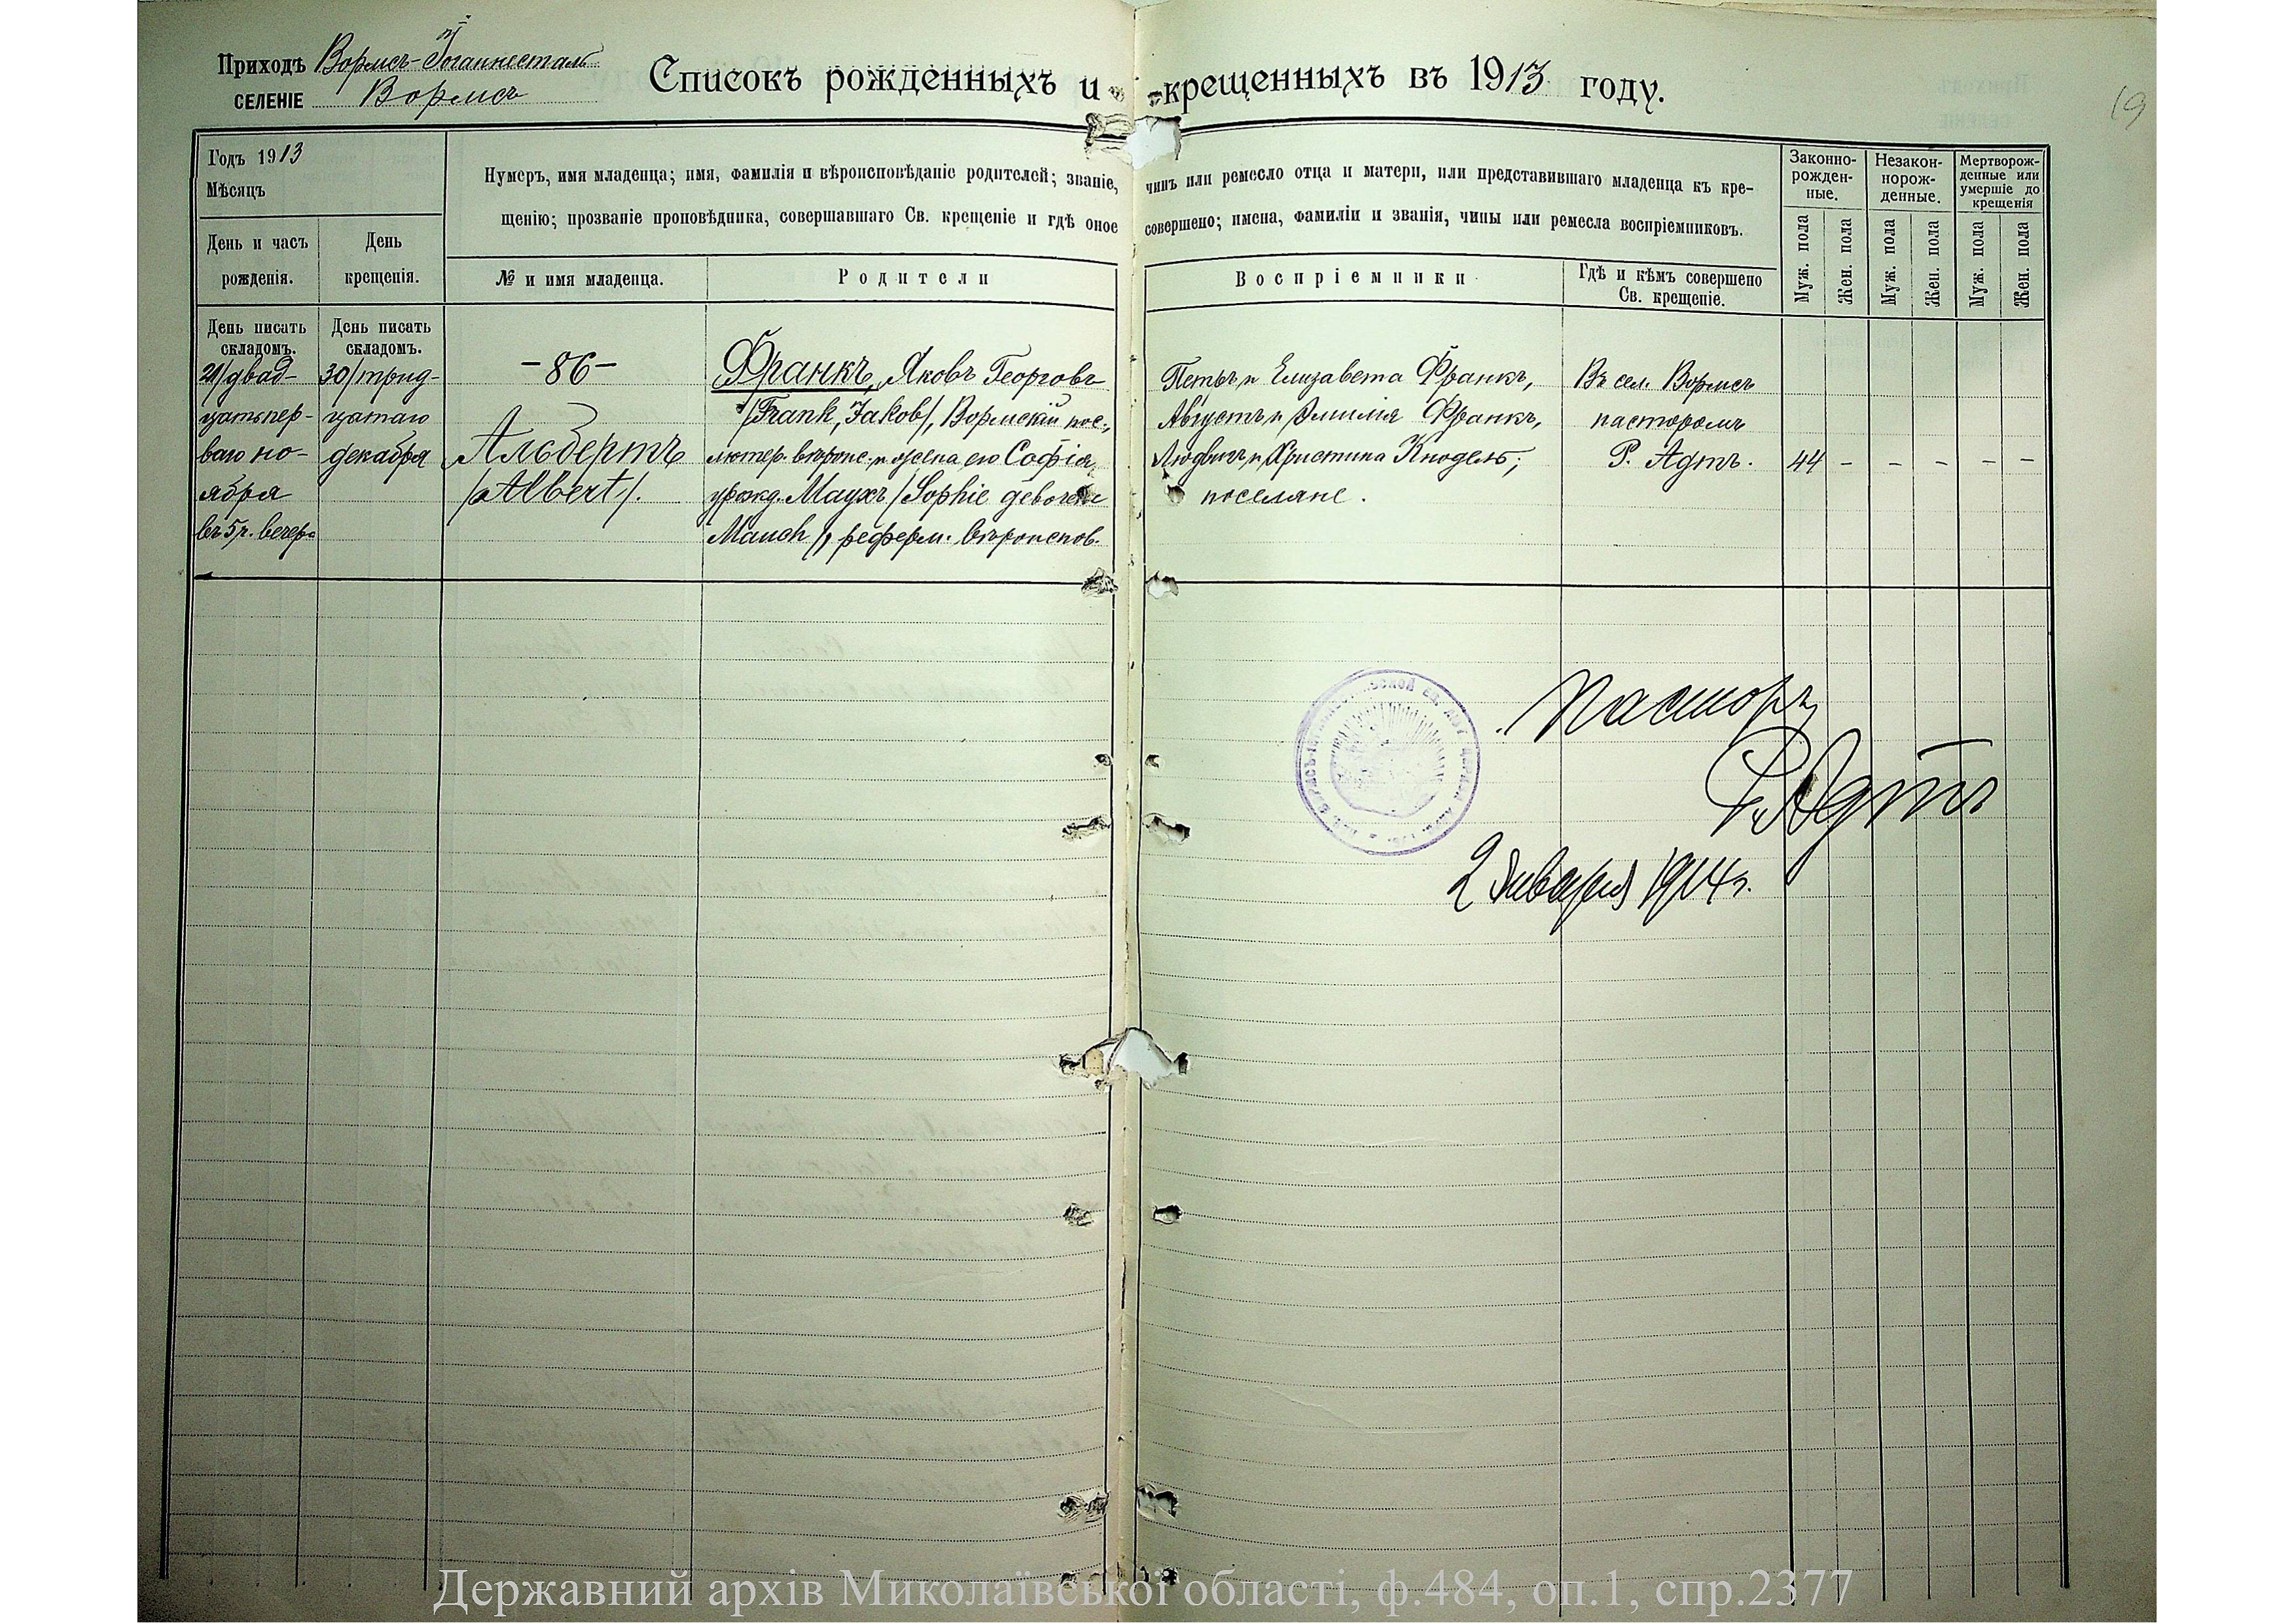 Приходъ Вормсъ-Іоганнесталь
СЕЛЕНІЕ Вормсъ
Списокъ рожденныхъ и крещенныхъ въ 1913 году.
19
Годъ 1913
Мѣсяцъ
День и часъ
рожденія.
День
крещенія.
Нумеръ, имя младенца; имя, фамилія и вѣроисповѣданіе родителей; званіе,
щенію; прозваніе проповѣдника, совершавшаго Св. крещеніе и гдѣ оное
№ и имя младенца.
Родители
чинъ или ремесло отца и матери, или представившаго младенца къ кре-
совершено; имена, фамиліи и званія, чины или ремесла воспріемниковъ.
Воспріемники
Гдѣ и кѣмъ совершено
Св. крещеніе.
Законно-
рожден-
ные.
Незакон-
норож-
денные.
Мертворож-
денные или
умершіе до
крещенія
Муж. пола
Жен. пола
Муж. пола
Жен. пола
Муж. пола
Жен. пола
День писать
складомъ.
21/двад-
цатьпер-
ваго но-
ября
въ 5 ч. вечера
День писать
складомъ.
30/трид-
цатаго
декабря
-86-
Альбертъ
/Albert/.
Франкъ, Яковъ Георговъ
/Frank, Jakob/, Вормскій пос.,
лютер. вѣроис. и жена его Софія,
урожд. Маухъ /Sophie
Mauch/, реформ. вѣроиспов.
Петръ и Елизавета Франкъ,
Августъ и Эмилія Франкъ,
Людвигъ и Христина Кнодель;
поселяне.
Въ сел. Вормсъ
пасторомъ
Р. Адтъ.
44 - - - - -
Пасторъ
Р. Адтъ
2 Января 1914 г.
Державний архів Миколаївської області, ф.484, оп.1, спр.2377